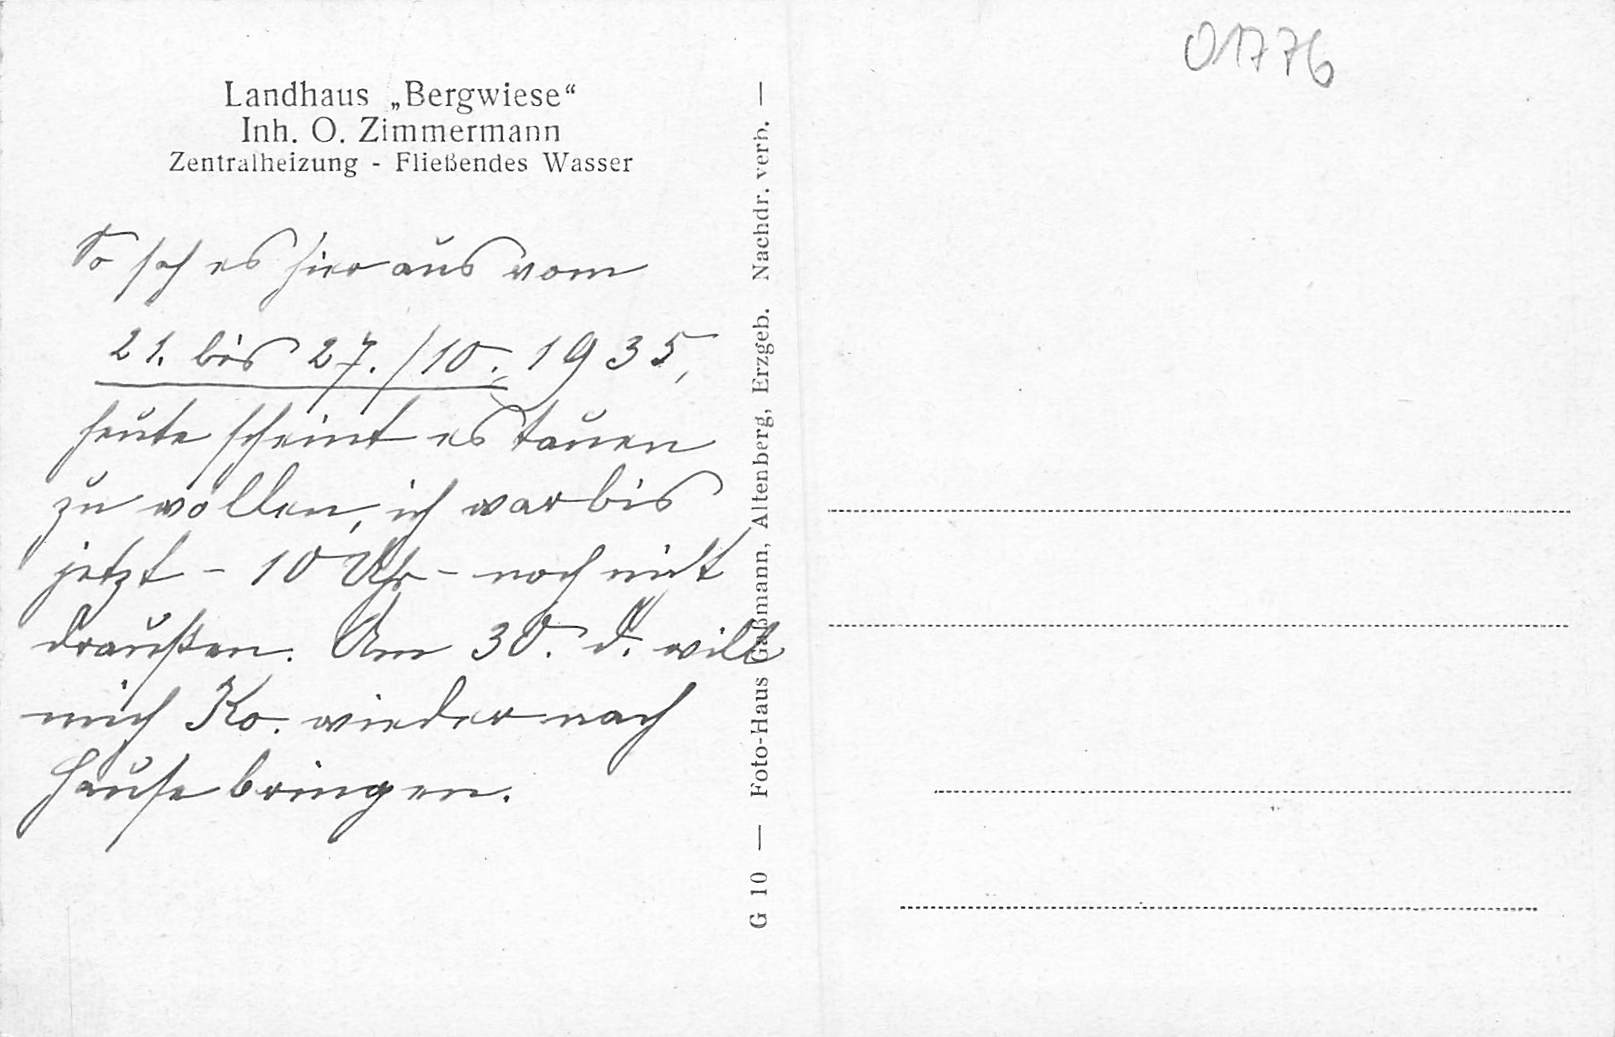 01776
Landhaus „Bergwiese“
Inh. O. Zimmermann
Zentralheizung - Fließendes Wasser
So sah es hier aus vom
21. bis 27./10. 1935,
heute scheint es tauen
zu wollen, ich war bis
jetzt - 10 Uhr - noch nicht
draußen. Am 30. d. will
mich Ko. wieder nach
Hause bringen.
G 10 — Foto-Haus Gaßmann, Altenberg, Erzgeb. Nachdr. verb. —